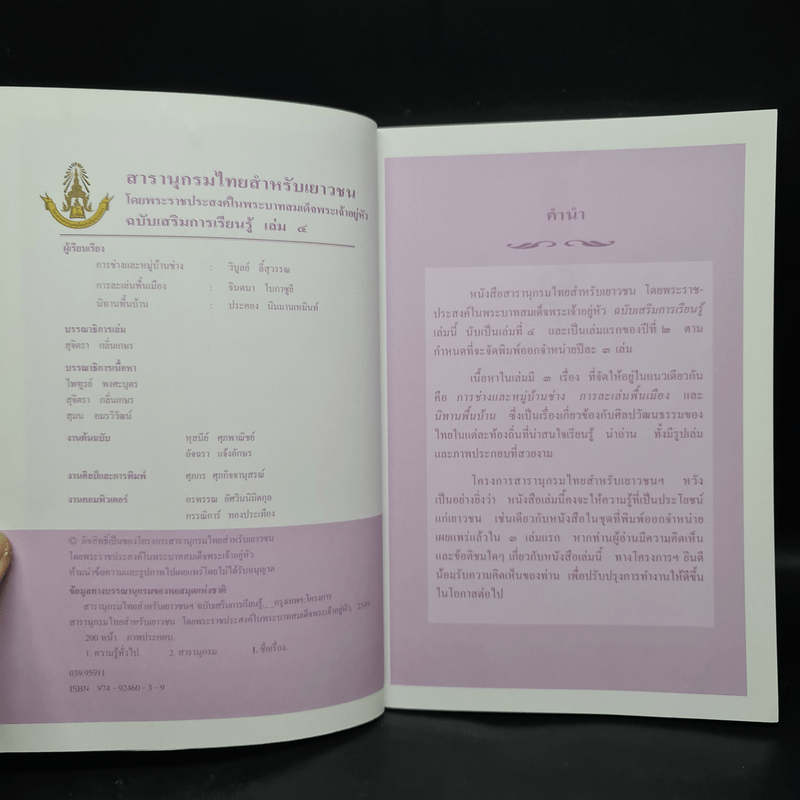 สารานุกรมไทยสำหรับเยาวชน
โดยพระราชประสงค์ในพระบาทสมเด็จพระเจ้าอยู่หัว
ฉบับเสริมการเรียนรู้ เล่ม ๔
ผู้เรียบเรียง
การช่างและหมู่บ้านช่าง : วิบูลย์ ลี้สุวรรณ
การละเล่นพื้นเมือง : จินตนา ใบกาซูยี
นิทานพื้นบ้าน : ประคอง นิมมานเหมินท์
บรรณาธิการเล่ม
สุจิตรา กลิ่นเกษร
บรรณาธิการเนื้อหา
ไพฑูรย์ พงศะบุตร
สุจิตรา กลิ่นเกษร
สุมน อมรวิวัฒน์
งานต้นฉบับ หุสนีย์ ศุภพาณิชย์
อัจฉรา แจ้งอักษร
งานศิลป์และการพิมพ์ ศุภกร ศุภกิจจานุสรณ์
งานคอมพิวเตอร์ อรพรรณ อัศวินนิมิตกุล
กรรณิการ์ ทองประเทือง
© ลิขสิทธิ์เป็นของโครงการสารานุกรมไทยสำหรับเยาวชน
โดยพระราชประสงค์ในพระบาทสมเด็จพระเจ้าอยู่หัว
ห้ามนำข้อความและรูปภาพไปเผยแพร่โดยไม่ได้รับอนุญาต
ข้อมูลทางบรรณานุกรมของหอสมุดแห่งชาติ
สารานุกรมไทยสำหรับเยาวชนฯ ฉบับเสริมการเรียนรู้.__กรุงเทพฯ:โครงการ
สารานุกรมไทยสำหรับเยาวชน โดยพระราชประสงค์ในพระบาทสมเด็จพระเจ้าอยู่หัว,
200 หน้า ภาพประกอบ
1. ความรู้ทั่วไป. 2. สารานุกรม. I. ชื่อเรื่อง.
039.95911
ISBN 974 - 92460 - 3 - 9
คำนำ
หนังสือสารานุกรมไทยสำหรับเยาวชน โดยพระราช-
ประสงค์ในพระบาทสมเด็จพระเจ้าอยู่หัว ฉบับเสริมการเรียนรู้
เล่มนี้ นับเป็นเล่มที่ ๔ และเป็นเล่มแรกของปีที่ ๒ ตาม
กำหนดที่จะจัดพิมพ์ออกจำหน่ายปีละ ๓ เล่ม
เนื้อหาในเล่มมี ๓ เรื่อง ที่จัดให้อยู่ในแนวเดียวกัน
คือ การช่างและหมู่บ้านช่าง การละเล่นพื้นเมือง และ
นิทานพื้นบ้าน ซึ่งเป็นเรื่องเกี่ยวข้องกับศิลปวัฒนธรรมของ
ไทยในแต่ละท้องถิ่นที่น่าสนใจเรียนรู้ น่าอ่าน ทั้งมีรูปเล่ม
และภาพประกอบที่สวยงาม
โครงการสารานุกรมไทยสำหรับเยาวชนฯ หวัง
เป็นอย่างยิ่งว่า หนังสือเล่มนี้คงจะให้ความรู้ที่เป็นประโยชน์
แก่เยาวชน เช่นเดียวกับหนังสือในชุดที่พิมพ์ออกจำหน่าย
เผยแพร่แล้วใน ๓ เล่มแรก หากท่านผู้อ่านมีความคิดเห็น
และข้อติชมใดๆ เกี่ยวกับหนังสือเล่มนี้ ทางโครงการฯ ยินดี
น้อมรับความคิดเห็นของท่าน เพื่อปรับปรุงการทำงานให้ดีขึ้น
ในโอกาสต่อไป